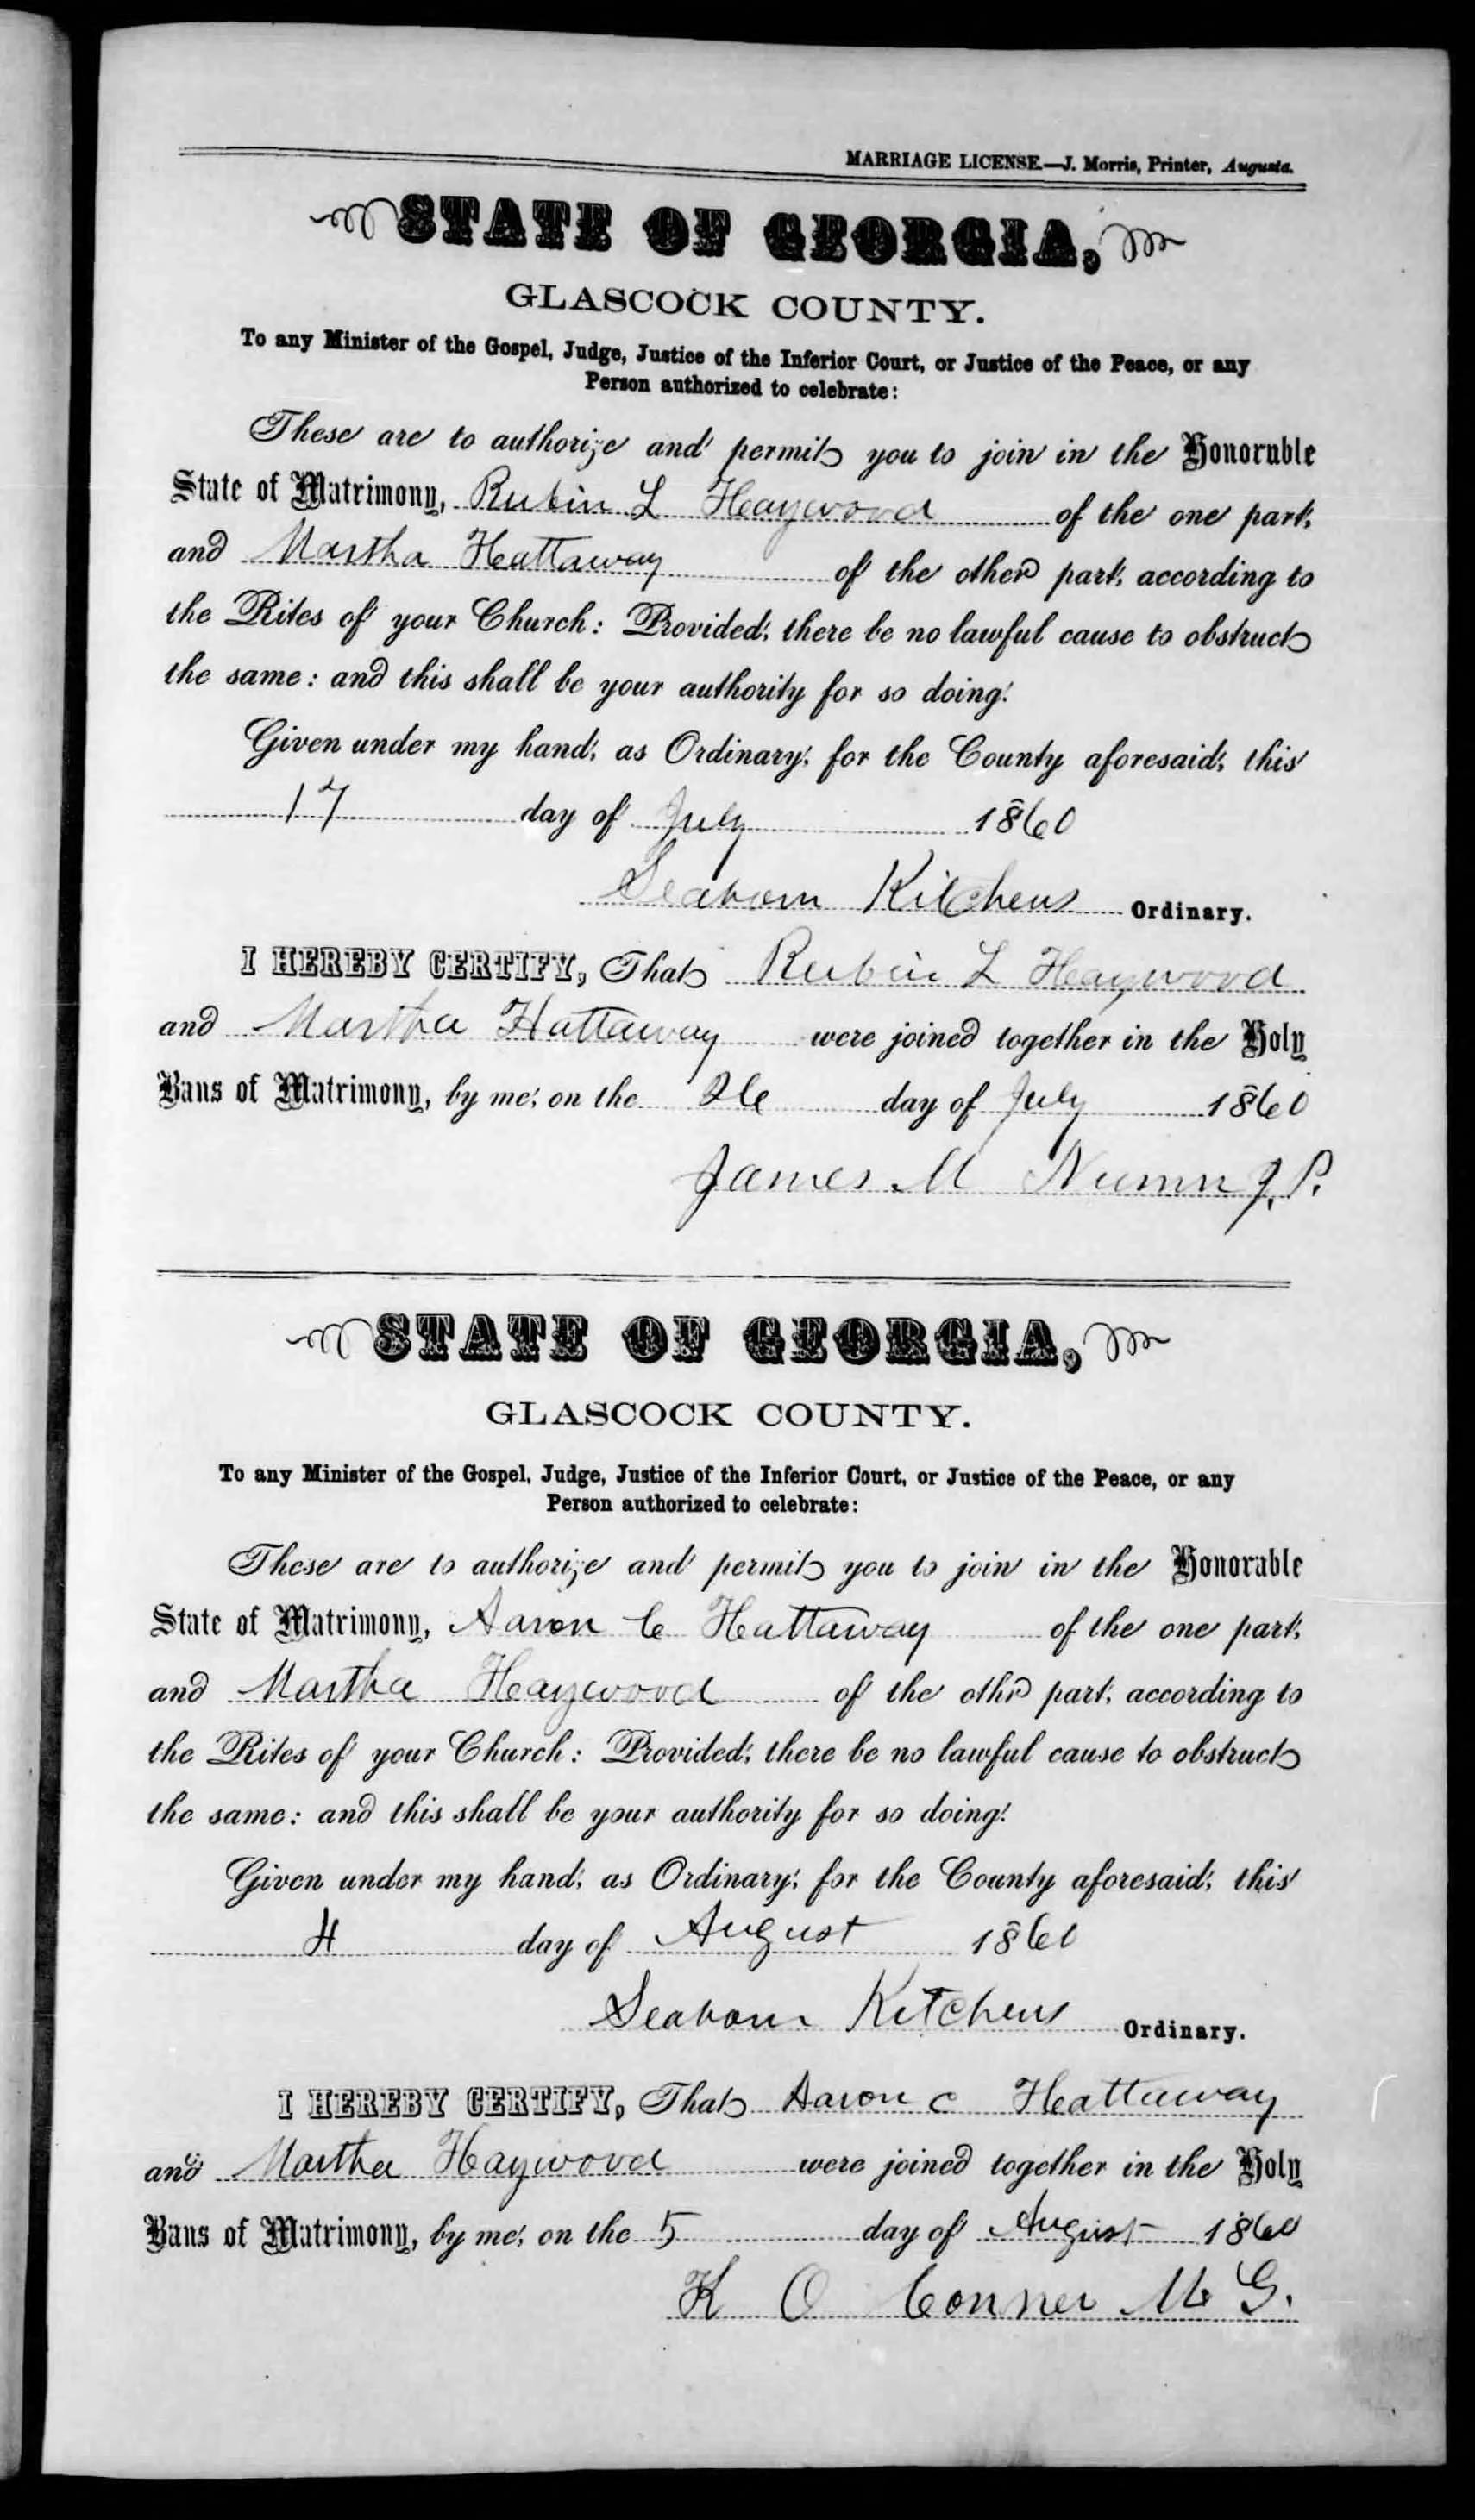 MARRIAGE LICENSE.—J. Morris, Printer, Augusta.
STATE OF GEORGIA,
GLASCOCK COUNTY.
To any Minister of the Gospel, Judge, Justice of the Inferior Court, or Justice of the Peace, or any
Person authorized to celebrate:
These are to authorize and permit you to join in the Honorable
State of Matrimony, Rubin L Haywood of the one part,
and Martha Hattaway of the other part, according to
the Rites of your Church: Provided, there be no lawful cause to obstruct
the same: and this shall be your authority for so doing.
Given under my hand, as Ordinary, for the County aforesaid, this
17 day of July 1860
Seaborn Kitchens Ordinary.
I HEREBY CERTIFY, That Rubin L Haywood
and Martha Hattaway were joined together in the Holy
Bans of Matrimony, by me, on the 26 day of July 1860
James M Nunn J.P.
STATE OF GEORGIA,
GLASCOCK COUNTY.
To any Minister of the Gospel, Judge, Justice of the Inferior Court, or Justice of the Peace, or any
Person authorized to celebrate:
These are to authorize and permit you to join in the Honorable
State of Matrimony, Aaron C Hattaway of the one part,
and Martha Haywood of the othr part, according to
the Rites of your Church: Provided, there be no lawful cause to obstruct
the same: and this shall be your authority for so doing.
Given under my hand, as Ordinary, for the County aforesaid, this
4 day of August 1860
Seaborn Kitchens Ordinary.
I HEREBY CERTIFY, That Aaron C Hattaway
and Martha Haywood were joined together in the Holy
Bans of Matrimony, by me, on the 5 day of August 1860
K O Conner M G.